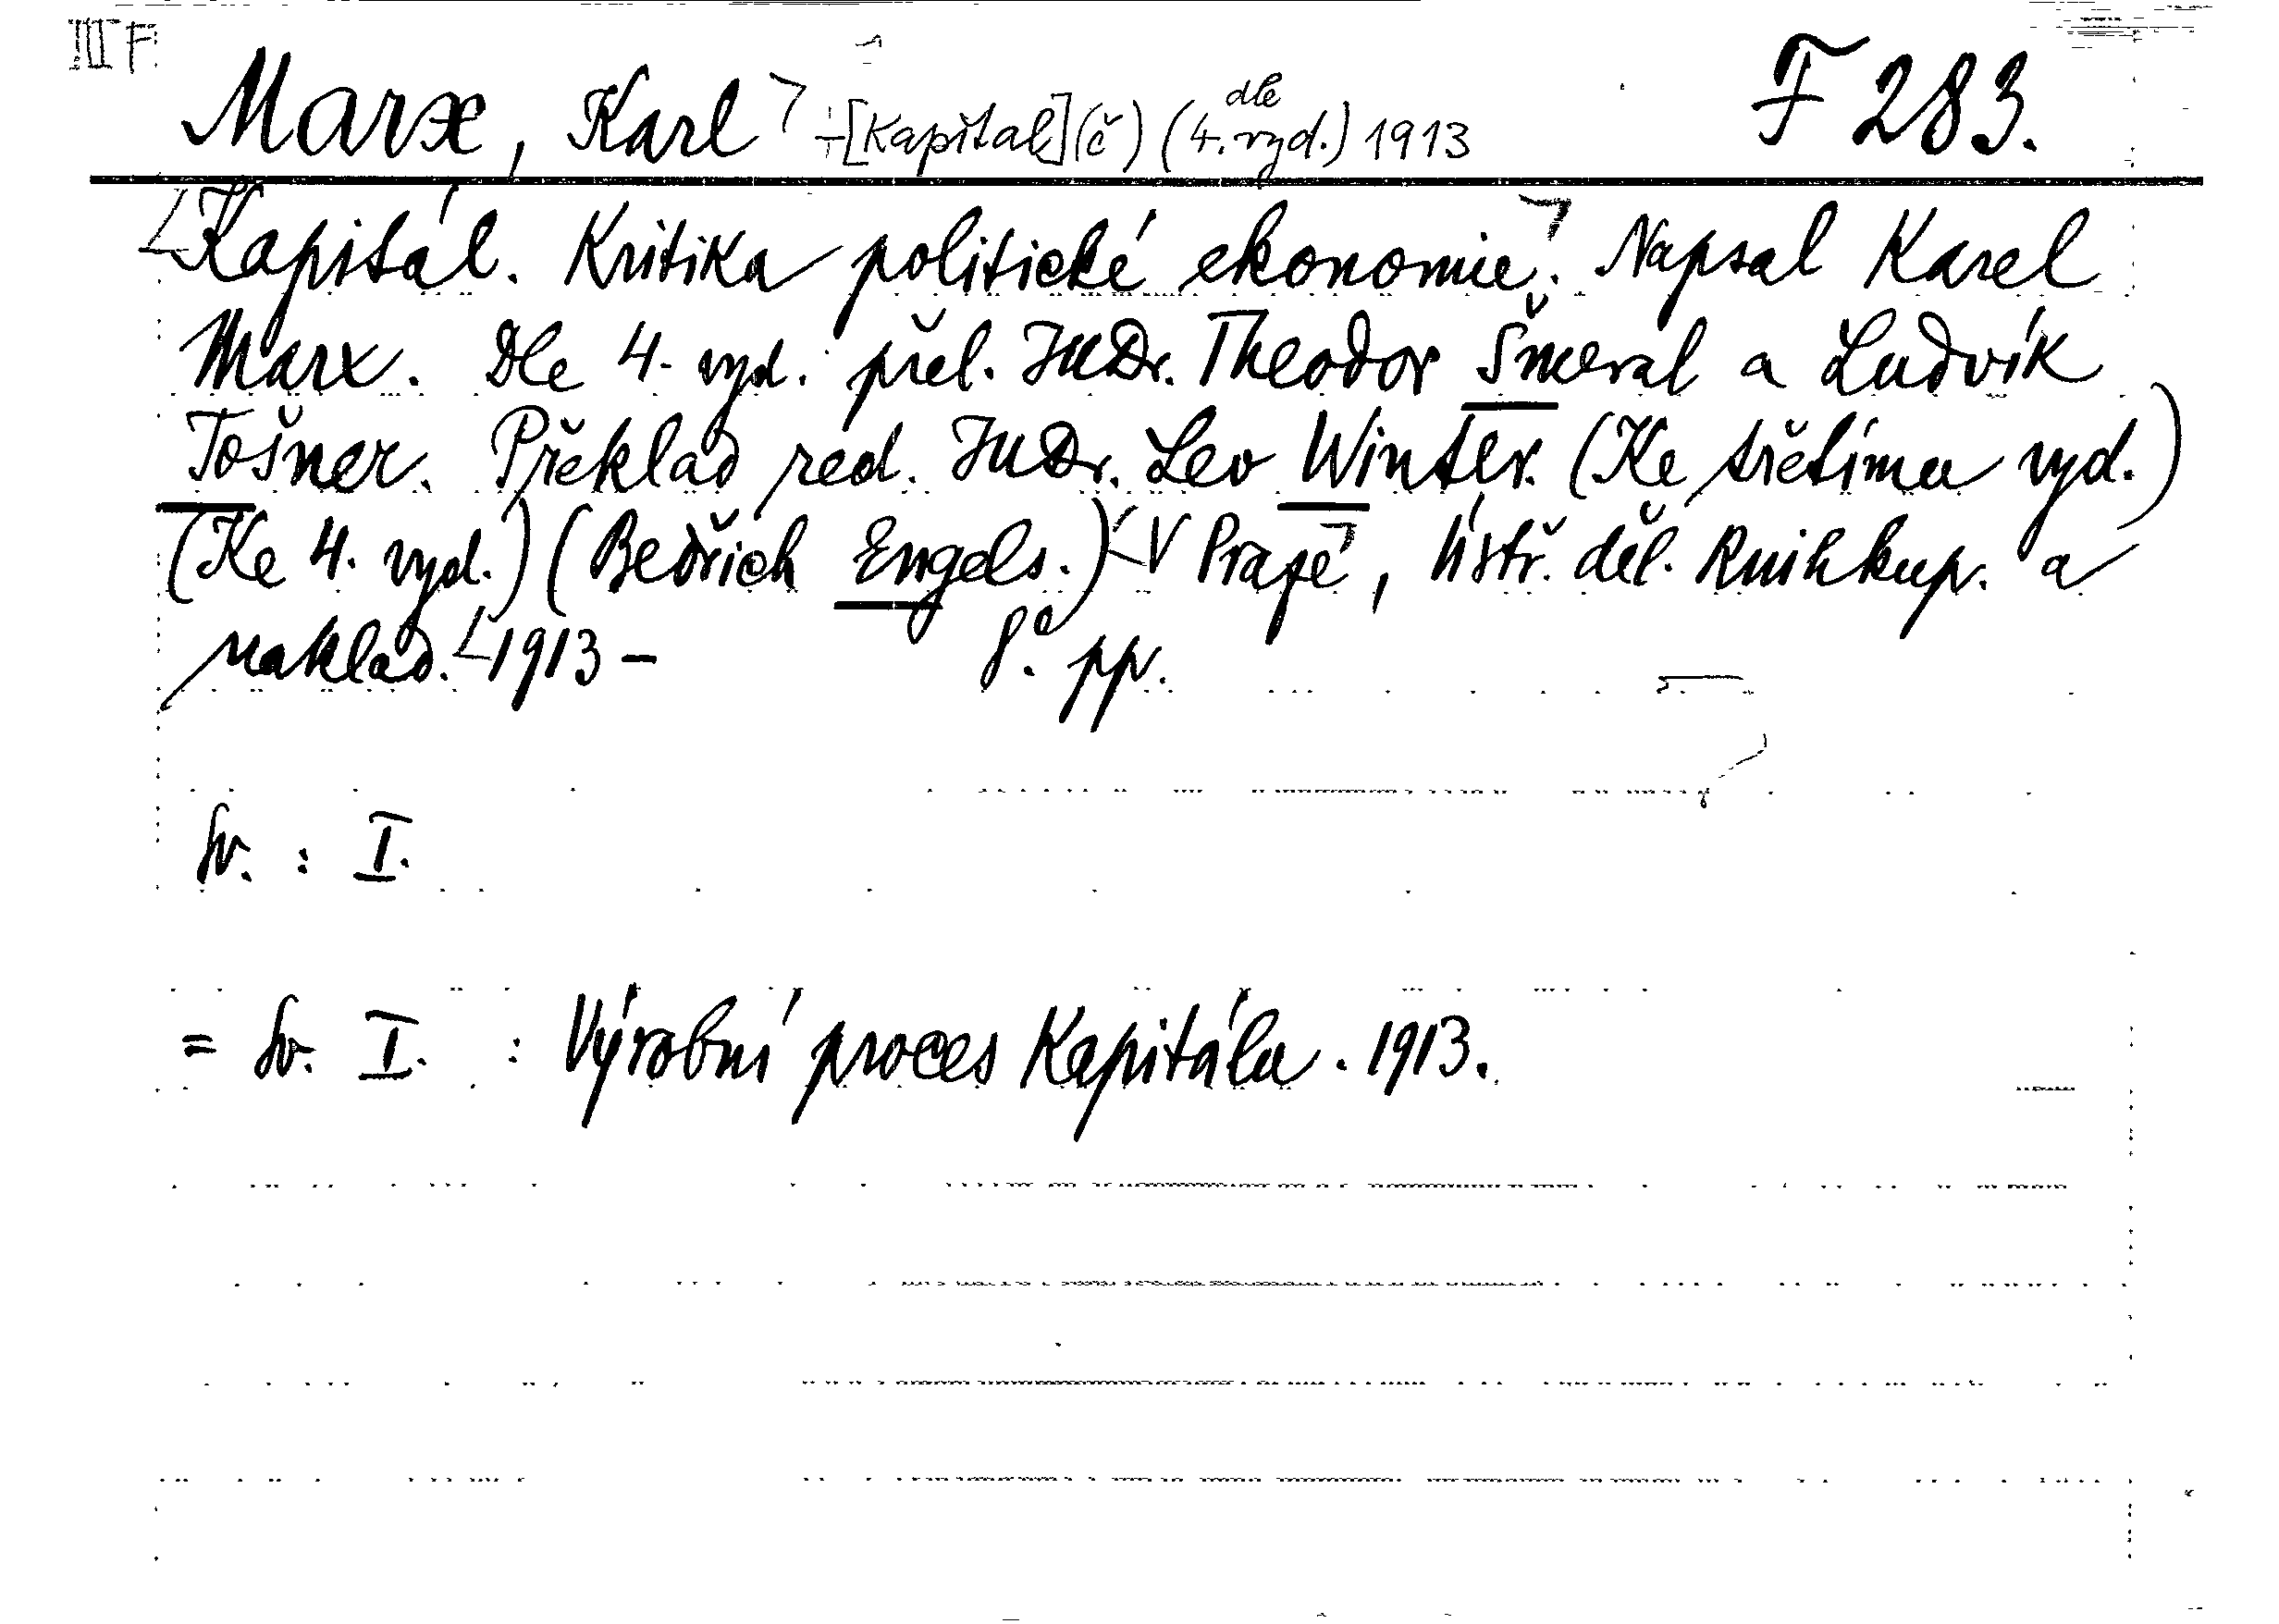 III F
Marx, Karl + [Kapital] (č) (dle 4. vyd.) 1913 F 283.
Kapitál. Kritika politické ekonomie. Napsal Karel
Marx. Dle 4. vyd. přel. JUDr. Theodor Šmeral a Ludvík
Tošner. Překlad red. JUDr. Leo Winter. (Ke třetímu vyd.)
(Ke 4. vyd.) (Bedřich Engels.) V Praze, Ústř. děl. knihkup. a
naklad. 1913 - 8°. pp.
Sv. : I.
= Sv. I. : Výrobní proces Kapitálu. 1913.